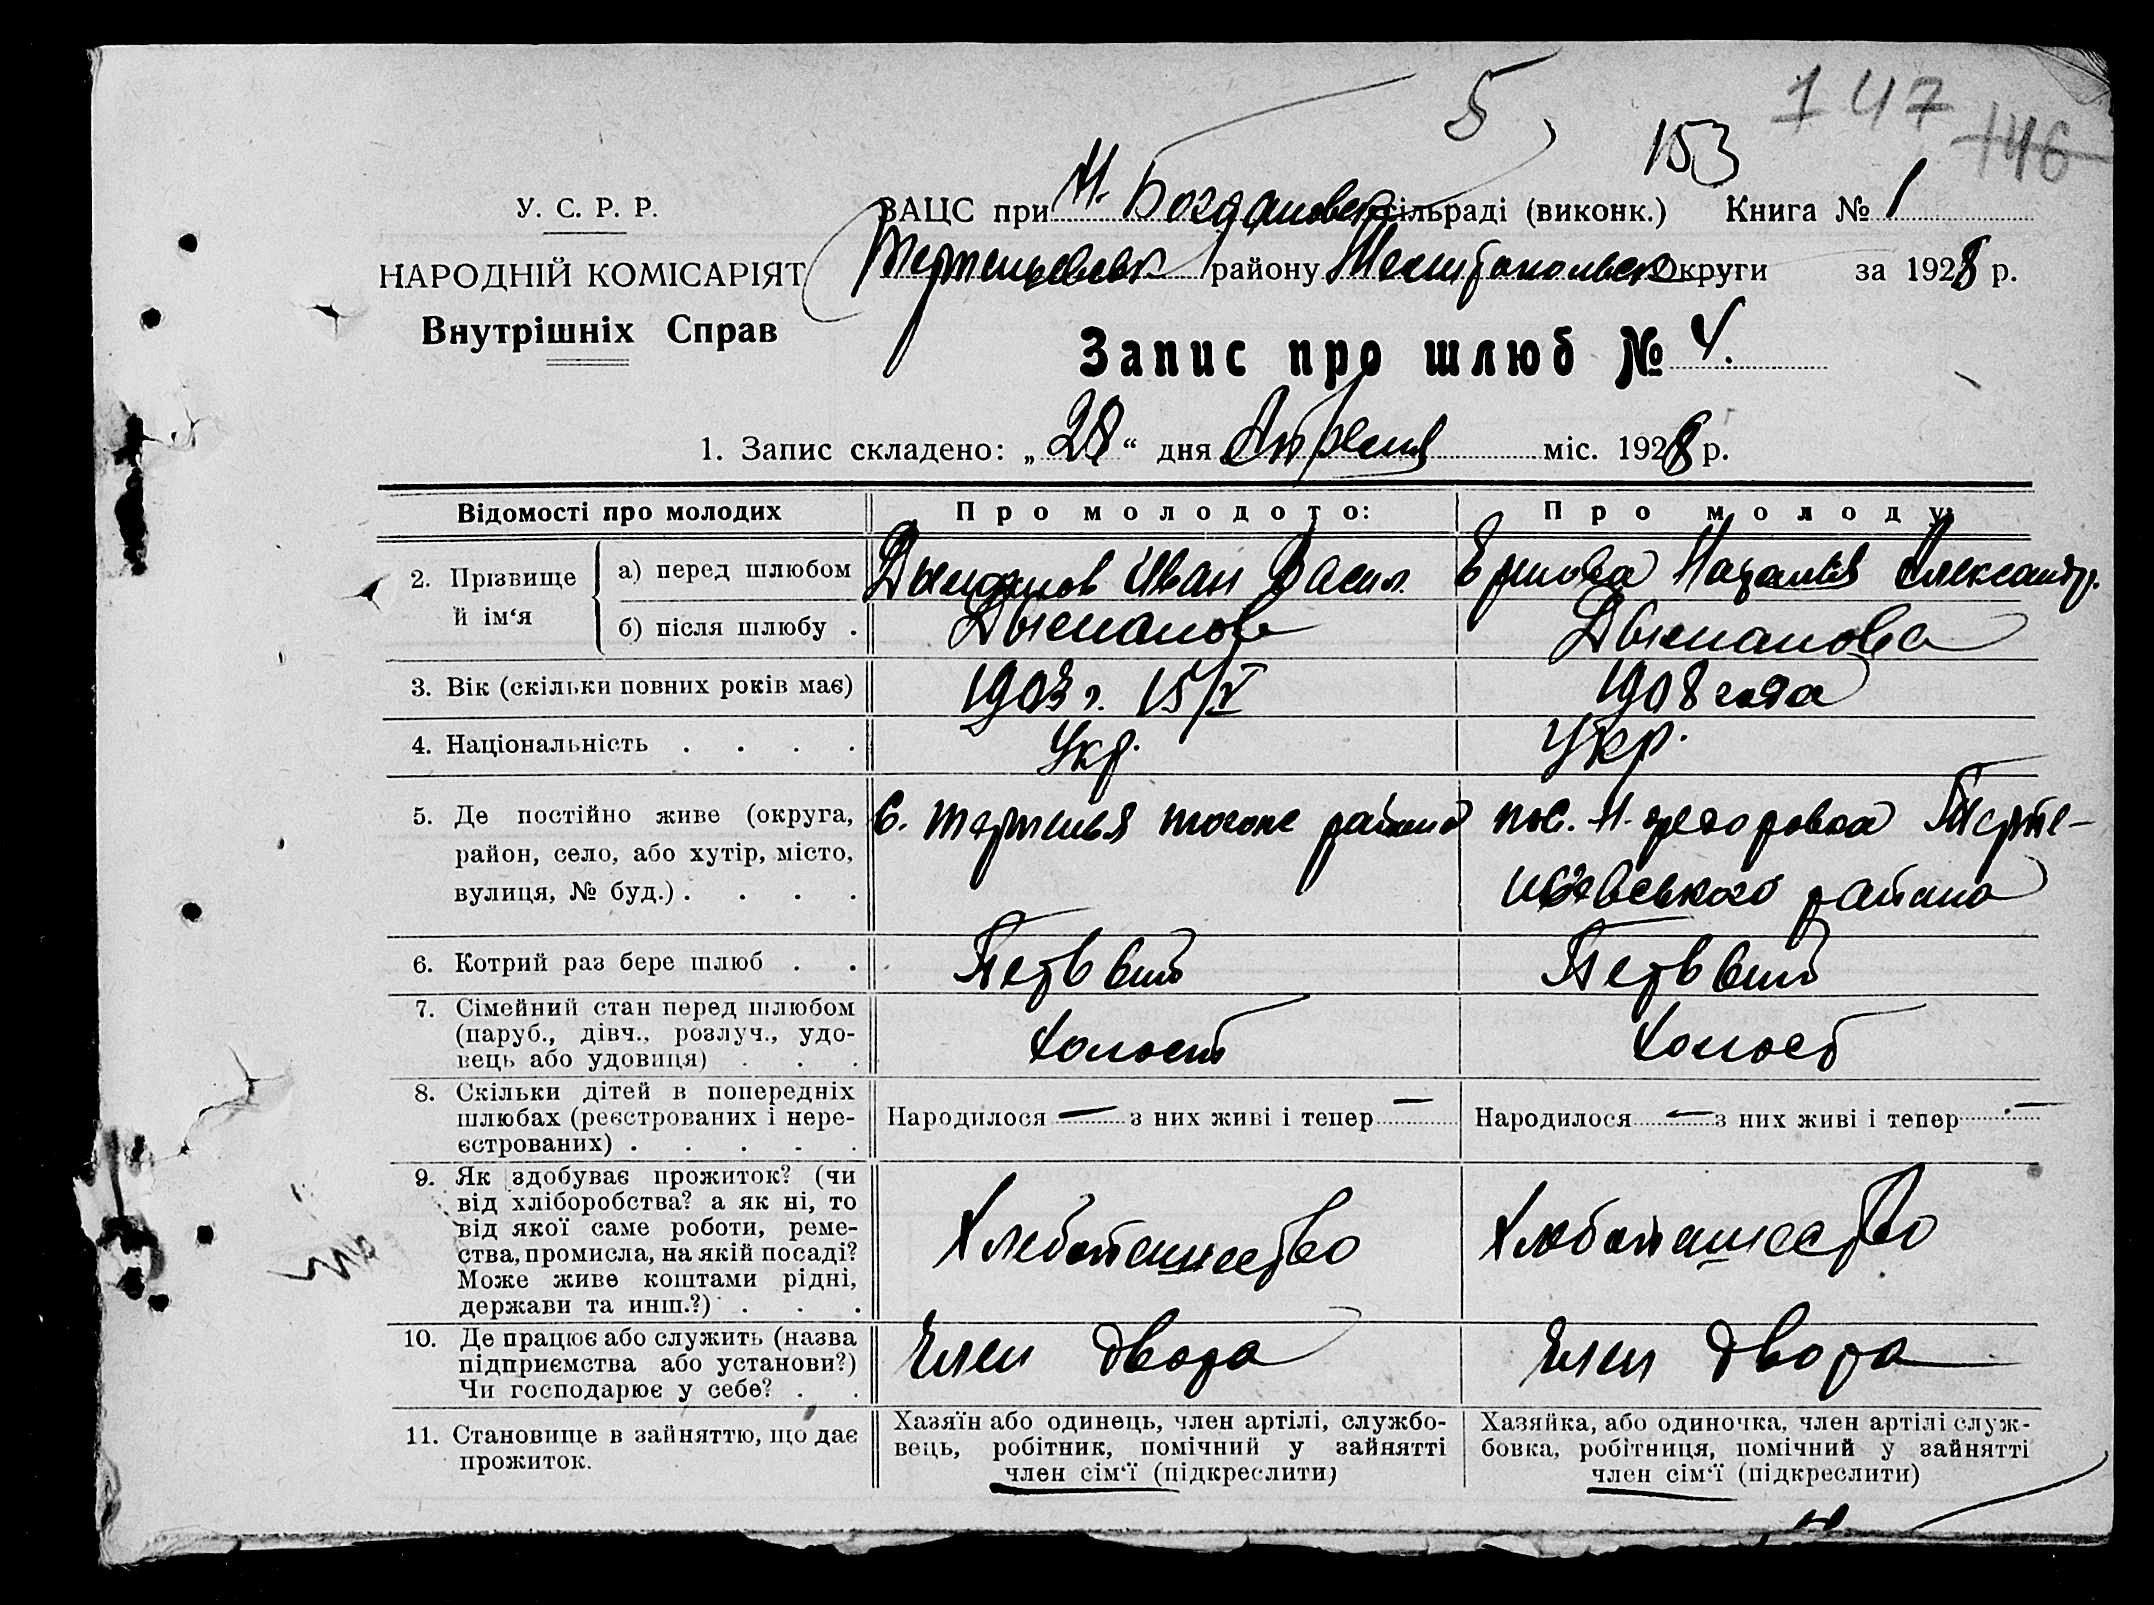 5
147
146
153
У. С. Р. Р.
ЗАЦС при Н. Богдановск сільраді (виконк.) Книга № 1
НАРОДНІЙ КОМІСАРІЯТ
району Мелитопольск округи за 1928 р.
Внутрішніх Справ
Запис про шлюб № 4.
1. Запис складено: „28“ дня Апреля міс. 1928 р.
Відомості про молодих
Про молодого:
Про молоду:
2. Прізвище й ім‘я
а) перед шлюбом
Дыманов Иван Васил.
Ершова Наталия Александр.
б) після шлюбу .
Дыманов
Дыманова
3. Вік (скільки повних років має)
1903 г. 15/V
1908 года
4. Національність . . . .
Укр.
Укр.
5. Де постійно живе (округа,
район, село, або хутір, місто,
вулиця, № буд.) . . . .
с. Терпенья тогоже района
пос. Н. Терпе-
района
6. Котрий раз бере шлюб . .
Первый
Первый
7. Сімейний стан перед шлюбом
(паруб., дівч., розлуч., удо-
вець або удовиця) . . .
Холост
Холост
8. Скільки дітей в попередніх
шлюбах (реєстрованих і нере-
єстрованих) . . . . .
Народилося — з них живі і тепер —
Народилося — з них живі і тепер —
9. Як здобуває прожиток? (чи
від хліборобства? а як ні, то
від якої саме роботи, реме-
ства, промисла, на якій посаді?
Може живе коштами рідні,
держави та инш.?) . . .
Хлебопашество
Хлебопашество
10. Де працює або служить (назва
підприємства або установи?)
Чи господарює у себе? . .
Член двора
Член двора
11. Становище в зайняттю, що дає
прожиток.
Хазяїн або одинець, член артілі, службо-
вець, робітник, помічний у зайнятті
член сім‘ї (підкреслити)
Хазяйка, або одиночка, член артілі служ-
бовка, робітниця, помічний у зайнятті
член сім‘ї (підкреслити)